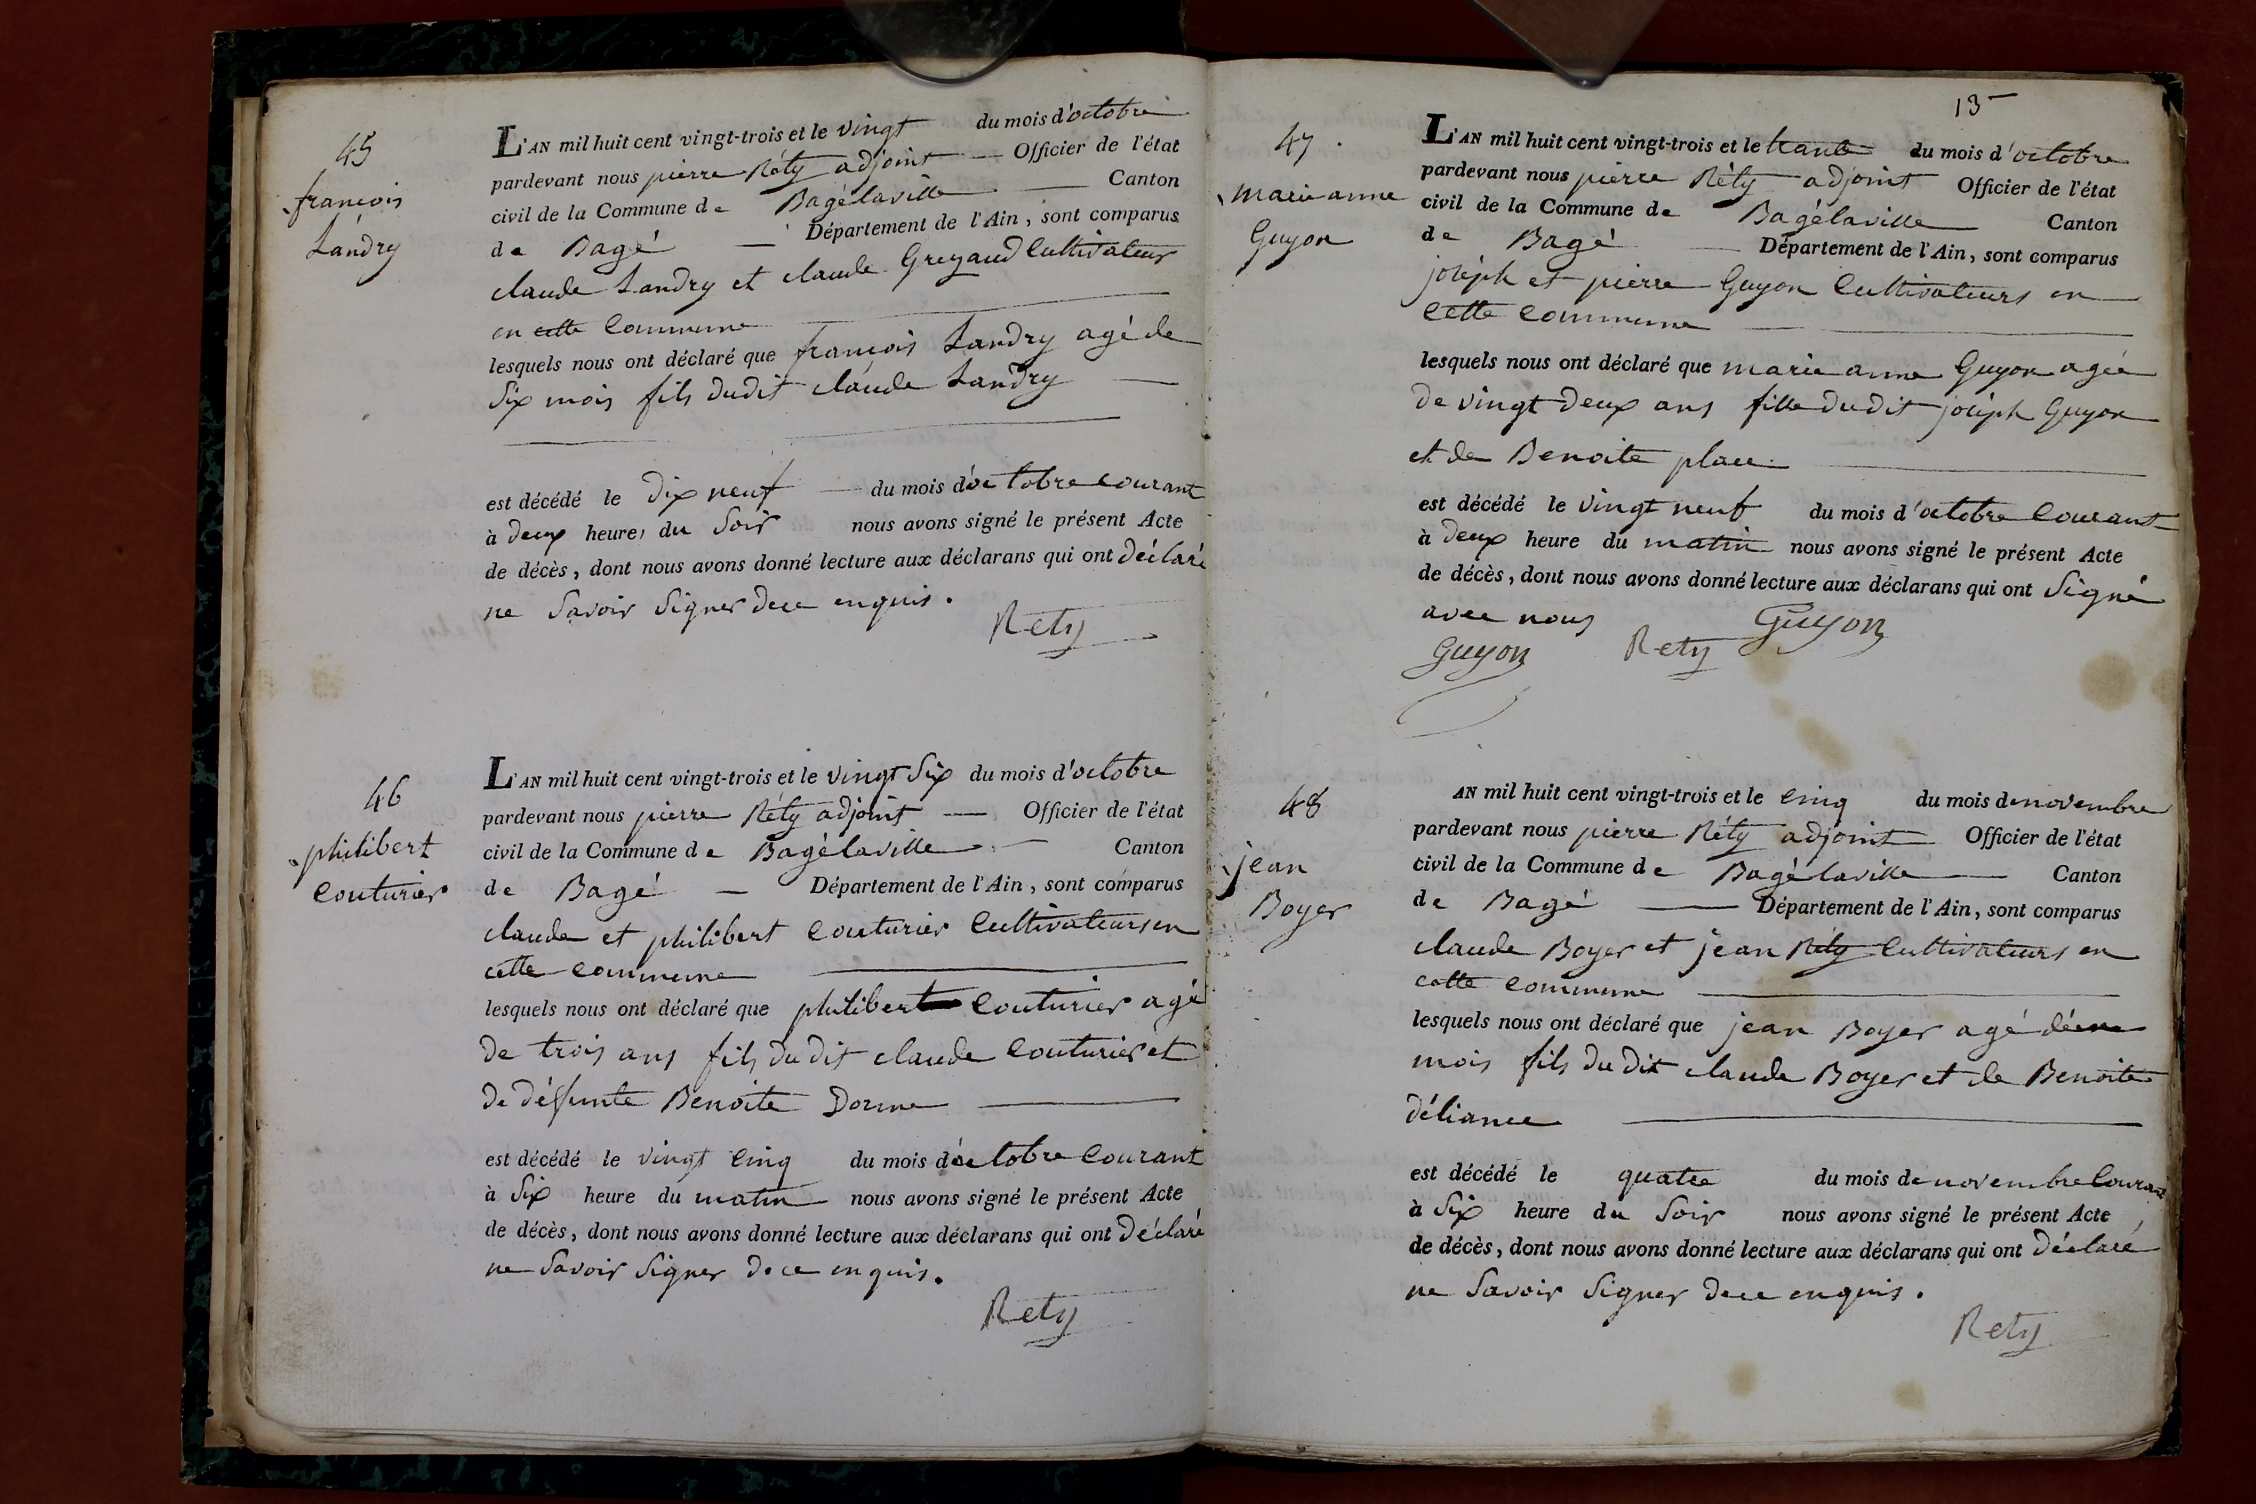 45
françois
Landry
L'AN mil huit cent vingt-trois et le vingt du mois d'octobre
pardevant nous pierre Réty adjoint — Officier de l'état
civil de la Commune de Bagélaville — Canton
de Bagé — Département de l'Ain, sont comparus
claude Landry et claude Greyaud Cultivateurs
en cette Commune
lesquels nous ont déclaré que françois Landry agé de
Six mois fils dudit claude Landry —
est décédé le dix neuf — du mois d'octobre courant
à deux heures du Soir nous avons signé le présent Acte
de décès, dont nous avons donné lecture aux déclarans qui ont déclaré
ne Savoir Signer de ce enquis.
Rety
46
philibert
couturier
L'AN mil huit cent vingt-trois et le vingt Six du mois d'octobre
pardevant nous pierre Réty adjoint — Officier de l'état
civil de la Commune de Bagélaville — Canton
de Bagé — Département de l'Ain, sont comparus
claude et philibert couturier Cultivateurs en
cette commune
lesquels nous ont déclaré que philibert couturier agé
de trois ans fils du dit claude Couturier et
de défunte Benoite Dorme
est décédé le vingt Cinq du mois d'octobre courant
à Six heure du matin nous avons signé le présent Acte
de décès, dont nous avons donné lecture aux déclarans qui ont déclaré
ne Savoir Signer de ce enquis.
Rety
13
47
marie anne
Guyon
L'AN mil huit cent vingt-trois et le trante du mois d'octobre
pardevant nous pierre Réty adjoint Officier de l'état
civil de la Commune de Bagélaville Canton
de Bagé — Département de l'Ain, sont comparus
joseph et pierre Guyon Cultivateurs en
cette commune
lesquels nous ont déclaré que marie anne Guyon agée
de vingt deux ans fille du dit joseph Guyon
et de Benoite place
est décédé le vingt neuf du mois d'octobre Courant
à deux heure du matin nous avons signé le présent Acte
de décès, dont nous avons donné lecture aux déclarans qui ont Signé
avec nous Guyon
Guyon Rety
48
jean
Boyer
AN mil huit cent vingt-trois et le Cinq du mois de novembre
pardevant nous pierre Réty adjoint Officier de l'état
civil de la Commune de Bagélaville — Canton
de Bagé — Département de l'Ain, sont comparus
claude Boyer et jean Réty Cultivateurs en
cette Commune
lesquels nous ont déclaré que jean Boyer agé
mois fils du dit claude Boyer et de Benoite
déliance
est décédé le quatre du mois de novembre Courant
à Six heure du Soir nous avons signé le présent Acte
de décès, dont nous avons donné lecture aux déclarans qui ont déclaré
ne Savoir Signer de ce enquis.
Rety